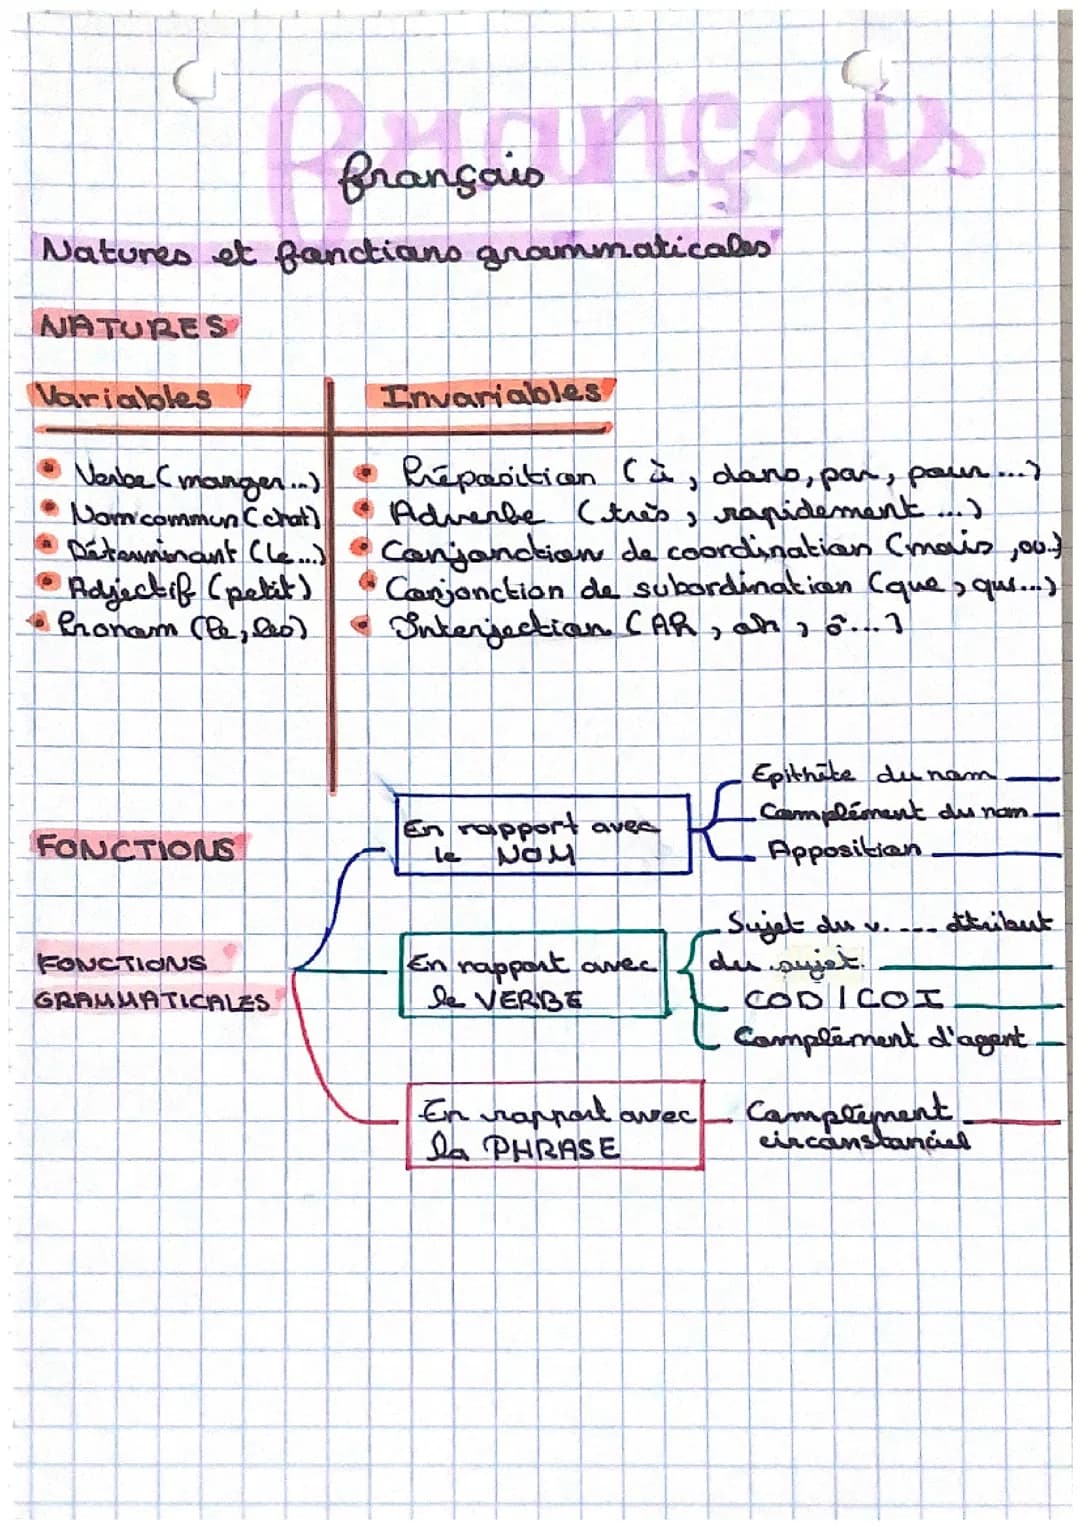 Français
français
Natures et fonctions grammaticales
NATURES
Variables
Invariables
Verbe (manger...)
Nom commun (chat)
Déterminant (le...)
Adjectif (petit)
Pronom (le, les)
Préposition (à, dans, par, pour...)
Adverbe (très, rapidement ...)
Conjonction de coordination (mais, ou.)
Conjonction de subordination (que, qui...)
Interjection (AR, ah, ô...)
FONCTIONS
FONCTIONS
GRAMMATICALES
En rapport avec
le NOM
Epithète du nom
Complément du nom
Apposition
En rapport avec
le VERBE
Sujet du v. ... attribut
du sujet
COD / COI
Complément d'agent
En rapport avec
la PHRASE
Complément
circonstanciel